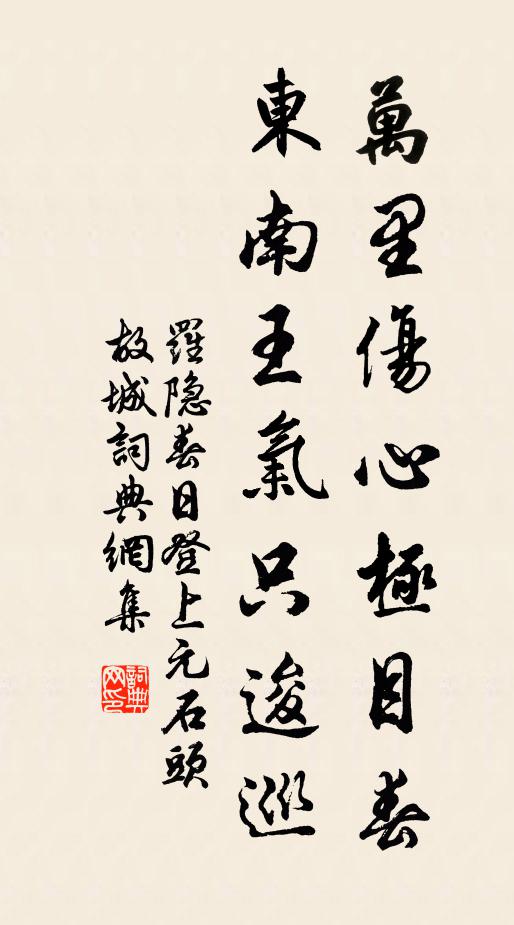 萬里傷心極目春
東南王氣只逡巡
羅隐春日登上元石頭
故城詞典網集
詞典
网印